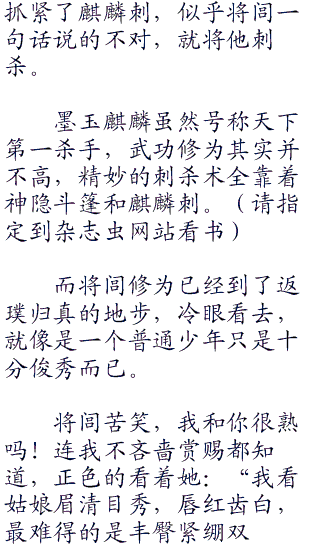 抓紧了麒麟刺，似乎将闾一
句话说的不对，就将他刺
杀。
墨玉麒麟虽然号称天下
第一杀手，武功修为其实并
不高，精妙的刺杀术全靠着
神隐斗篷和麒麟刺。（请指
定到杂志虫网站看书）
而将闾修为已经到了返
璞归真的地步，冷眼看去，
就像是一个普通少年只是十
分俊秀而已。
将闾苦笑，我和你很熟
吗！连我不吝啬赏赐都知
道，正色的看着她：“我看
姑娘眉清目秀，唇红齿白，
最难得的是丰臀紧绷双